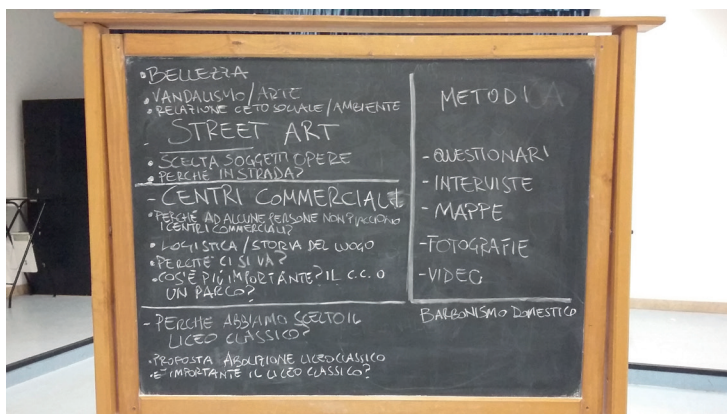 • BELLEZZA
• VANDALISMO/ARTE
• RELAZIONE CETO SOCIALE/AMBIENTE
- STREET ART
• SCELTA SOGGETTI OPERE
• PERCHÉ IN STRADA?
- CENTRI COMMERCIALI
• PERCHÉ AD ALCUNE PERSONE NON PIACCIONO
I CENTRI COMMERCIALI?
• LOGISTICA/STORIA DEL LUOGO
• PERCHÉ CI SI VA?
• COS'È PIÙ IMPORTANTE? IL C.C. O
UN PARCO?
- PERCHÉ ABBIAMO SCELTO IL
LICEO CLASSICO?
• PROPOSTA ABOLIZIONE LICEO CLASSICO
• È IMPORTANTE IL LICEO CLASSICO?
METODI
- QUESTIONARI
- INTERVISTE
- MAPPE
- FOTOGRAFIE
- VIDEO
BARBONISMO DOMESTICO